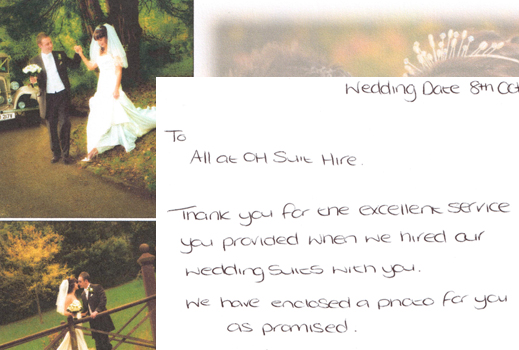 Wedding Date 8th Oct
To
All at OH Suit Hire.
Thank you for the excellent service
you provided when we hired our
wedding suits with you.
We have enclosed a photo for you
as promised.